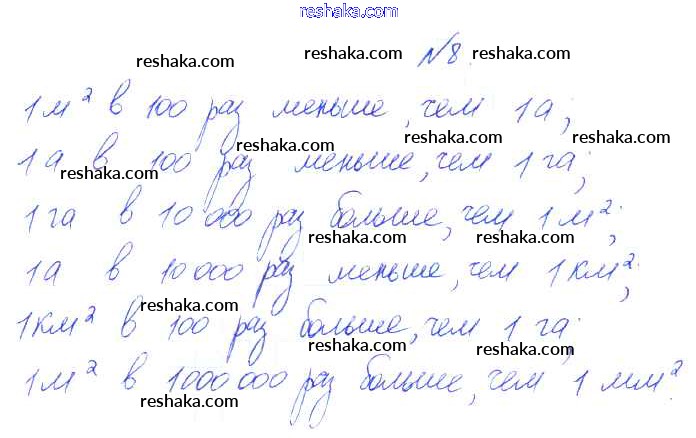 reshaka.com
reshaka.com reshaka.com №8.
reshaka.com
1 м² в 100 раз меньше, чем 1а;
reshaka.com reshaka.com
1а в 100 раз меньше, чем 1 га;
reshaka.com
1 га в 10 000 раз больше, чем 1 м²;
reshaka.com reshaka.com
1а в 10000 раз меньше, чем 1 км²;
reshaka.com reshaka.com
1 км² в 100 раз больше, чем 1 га;
reshaka.com reshaka.com
1 м² в 1000 000 раз больше, чем 1 мм².
reshaka.com reshaka.com